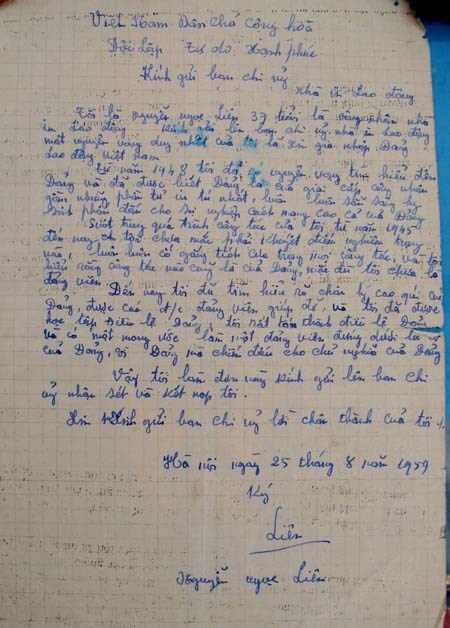 Việt Nam Dân Chủ Cộng hoà
Độc Lập Tự do Hạnh phúc
Kính gửi ban chi uỷ
Nhà in Lao động
Tôi là Nguyễn ngọc Liên 37 tuổi là công nhân nhà
in Lao động kính gửi lên ban chi uỷ nhà in Lao động
một nguyện vọng duy nhất của tôi là xin gia nhập Đảng
Lao động Việt Nam
Từ năm 1948 tôi đã có nguyện vọng tìm hiểu đến
Đảng và đã được biết Đảng là của giai cấp công nhân
gồm những phần tử ưu tú nhất, luôn luôn sẵn sàng hy
sinh phấn đấu cho sự nghiệp cách mạng cao cả của Đảng
Suốt trong quá trình công tác của tôi từ năm 1945
đến nay tôi chưa mắc phải khuyết điểm nghiêm trọng
nào, luôn luôn cố gắng tích cực trong mọi công tác, và tôi
hiểu rằng công tác nào cũng là của Đảng, mặc dù tôi chưa là
đảng viên
Đến nay tôi đã tìm hiểu rõ chân lý cao quí của
Đảng, được các đ/c đảng viên giúp đỡ, và tôi đã được
học tập Điều lệ Đảng, tôi rất tán thành điều lệ Đảng
và có một mong ước làm một đảng viên đứng dưới lá cờ
của Đảng, vì Đảng mà chiến đấu cho chủ nghĩa của Đảng
Vậy tôi làm đơn này kính gửi lên ban chi
uỷ nhận sét và kết nạp tôi.
Xin kính gửi ban chi uỷ lời chân thành của tôi ./.
Hà nội ngày 25 tháng 8 năm 1959
Ký
Liên
Nguyễn ngọc Liên